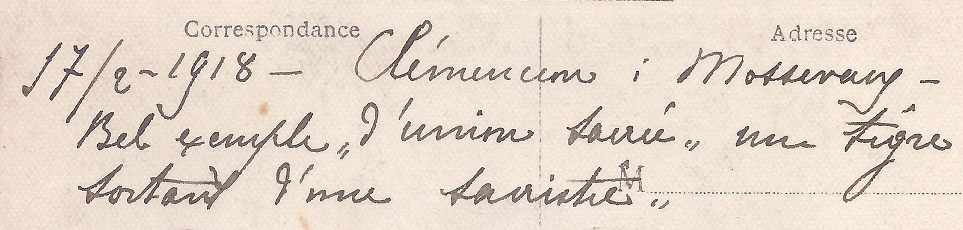 Correspondance Adresse
17/2-1918 - Clémenceau à Massevaux -
Bel exemple „d'union sacrée„ un tigre
sortant d'une sacristie„
M